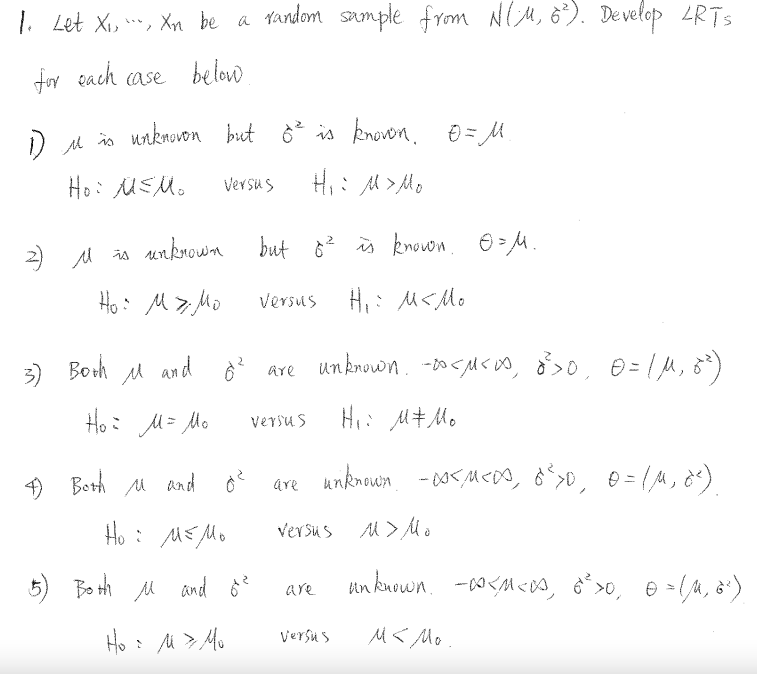 1. Let X₁, ..., Xn be a random sample from N(μ, σ²). Develop LRTs
for each case below
1) μ is unknown but σ² is known. θ = μ
H₀: μ ≤ μ₀ versus H₁: μ > μ₀
2) μ is unknown but σ² is known. θ = μ.
H₀: μ ≥ μ₀ versus H₁: μ < μ₀
3) Both μ and σ² are unknown. -∞<μ<∞, σ²>0, θ = (μ, σ²)
H₀: μ = μ₀ versus H₁: μ ≠ μ₀
4) Both μ and σ² are unknown. -∞<μ<∞, σ²>0, θ = (μ, σ²).
H₀: μ ≤ μ₀ versus μ > μ₀
5) Both μ and σ² are unknown. -∞<μ<∞, σ²>0, θ = (μ, σ²)
H₀: μ ≥ μ₀ versus μ < μ₀.